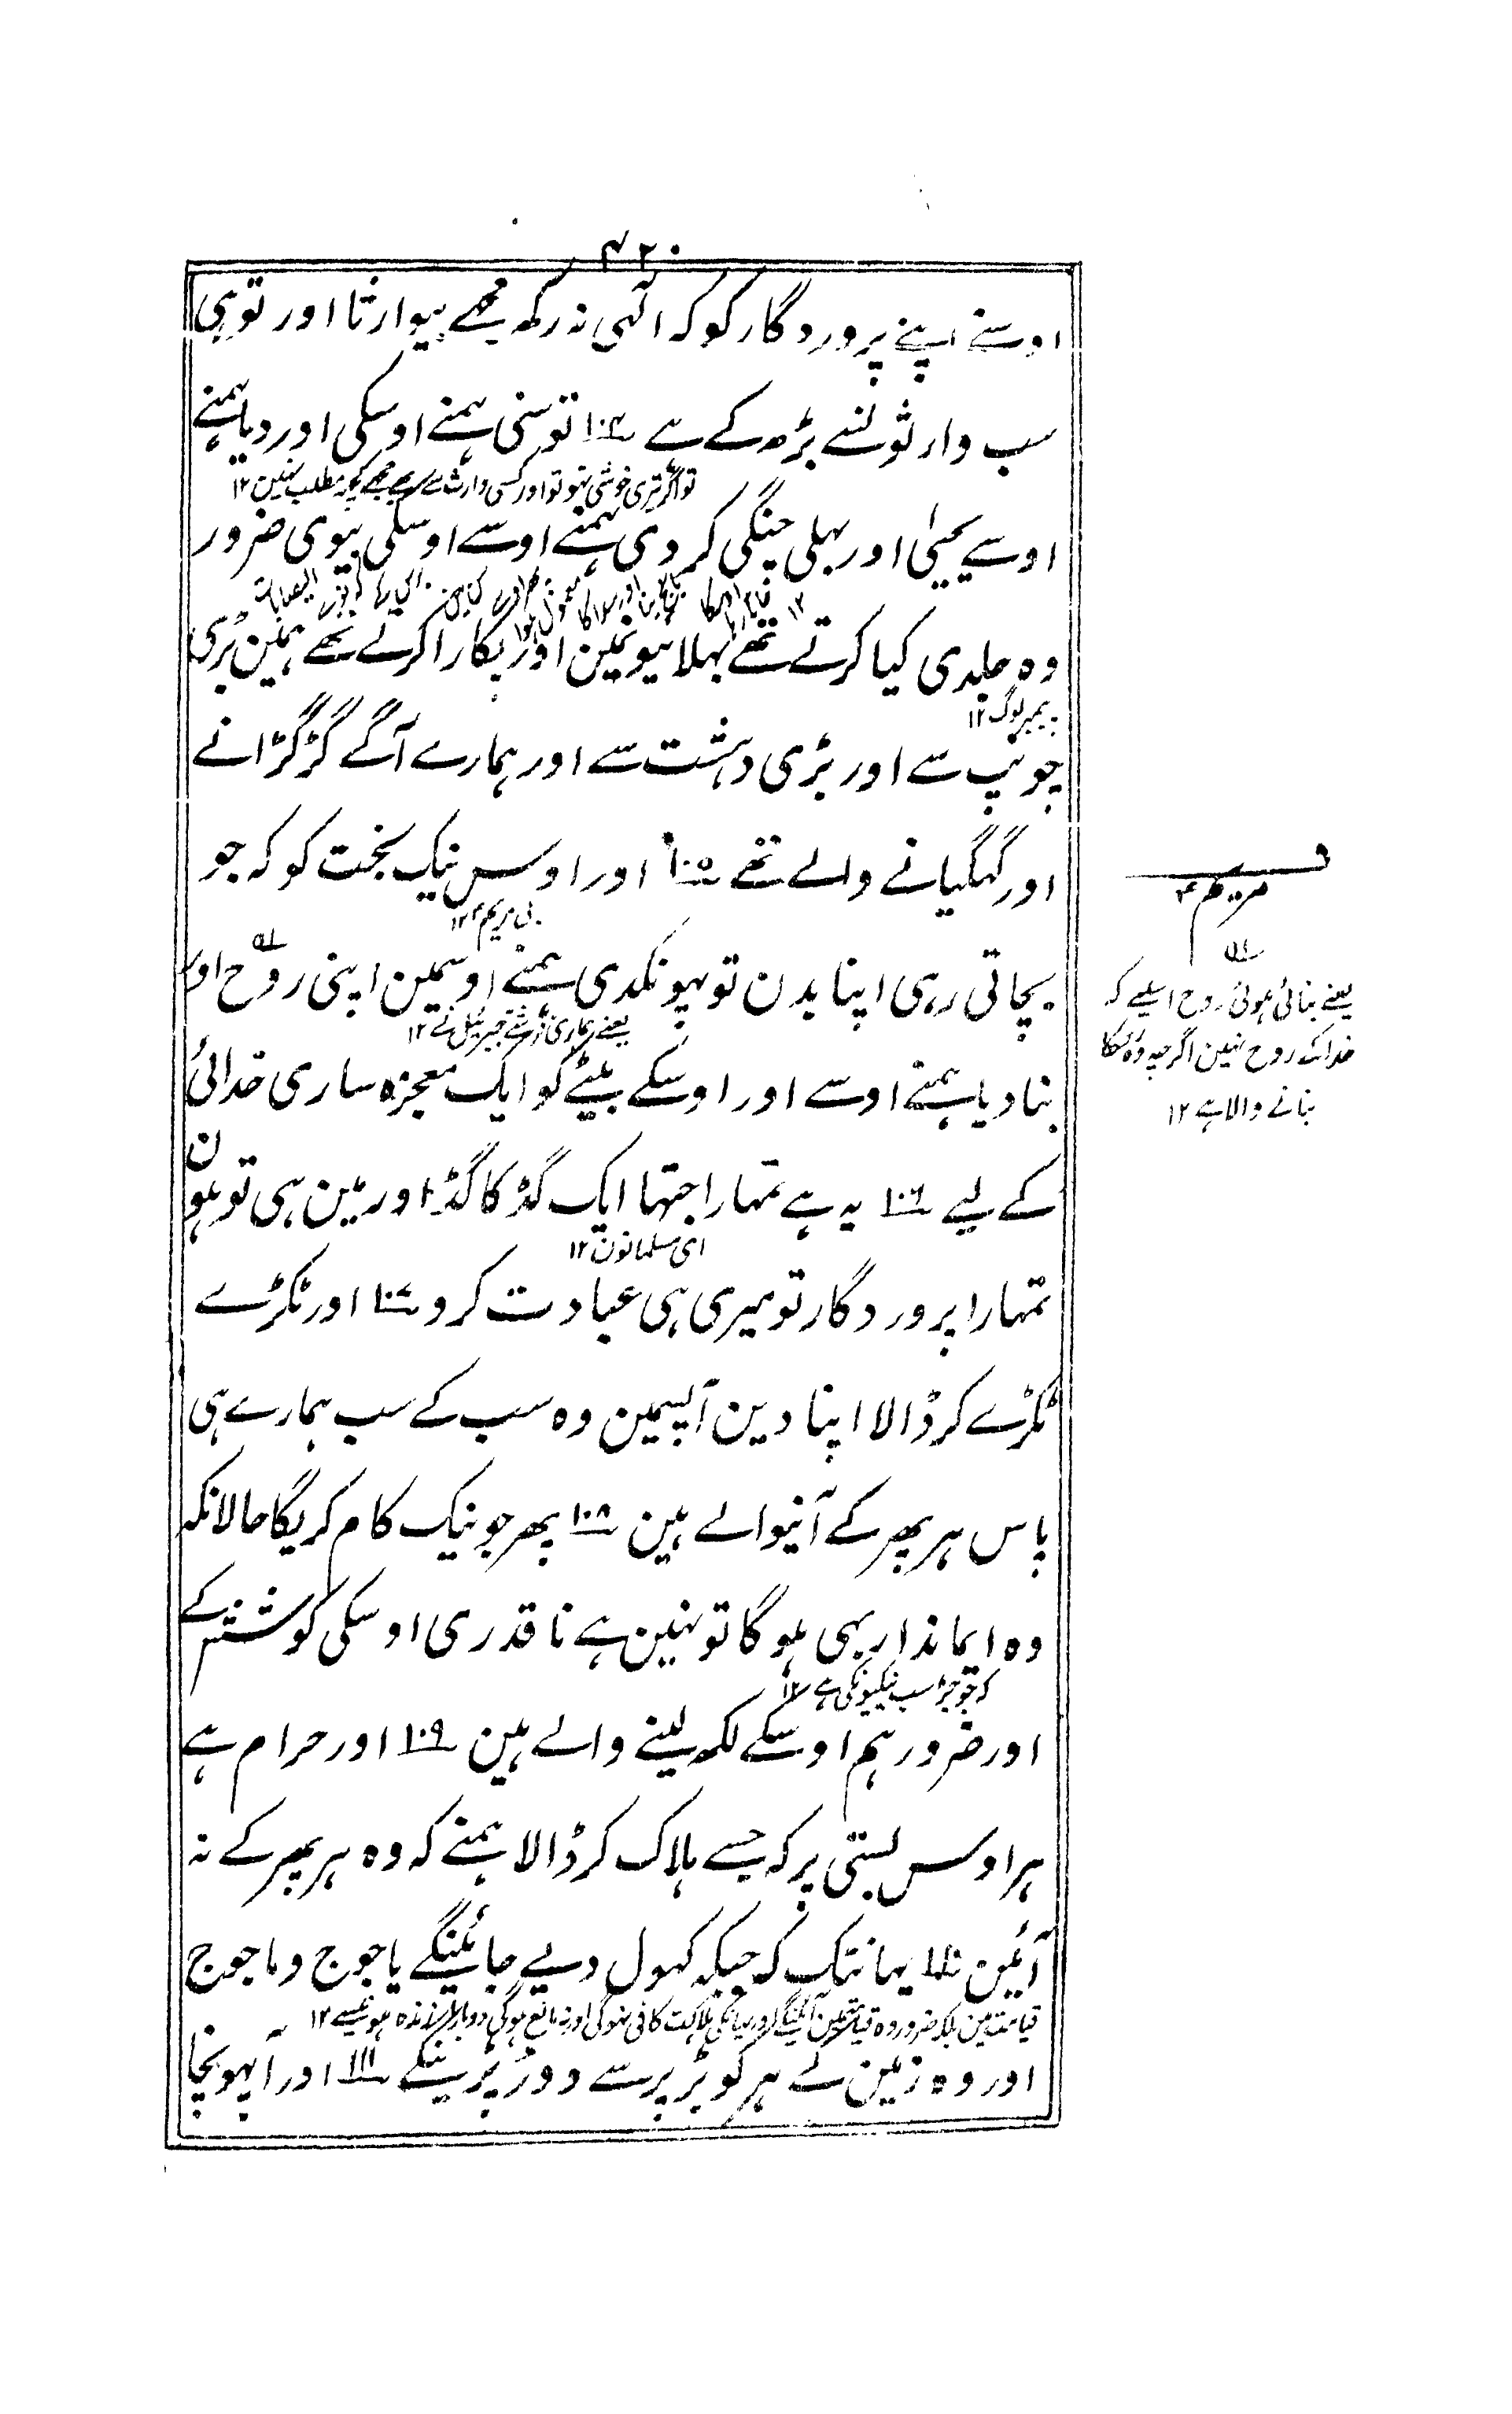 ۴۲۰
اوسنے اپنے پروردگار کو کہ الٰہی نہ رکھ مجھے بیوارثا اور تو ہی
سب وارثونسے بڑھ کے ہے ۱۰۴ تو سنی ہمنے اوسکی اور دیا ہمنے
تو اگر تیری خوشی نہو تو اور کسی وارث سے مجھے کچھ مطلب نہین ۱۲
اوسے یحییٰ اور بہلی چنگی کر دی ہمنے اوسے اوسکی بیوی ضرور
وہ جلدی کیا کرتے تھے بہلائیونمین اور پکارا کرتے تھے ہمین بڑی
پیمبر لوگ ۱۲
چونپ سے اور بڑی دہشت سے اور ہمارے آگے گڑگڑانے
اور گہگیانے والے تھے ۱۰۵ اور اوس نیک بخت کو کہ جو
بی مریم ۱۲
بچاتی رہی اپنا بدن تو پہونکدی ہمنے اوسمین اپنی روح اور
یعنے ہماری فرشتے جبرئیل نے ۱۲
بنا دیا ہمنے اوسے اور اوسکے بیٹے کو ایک معجزہ ساری خدائی
کے لیے ۱۰۶ یہ ہے تمہارا جتہا ایک گڈ کا گڈ اور مین ہی تو ہون
ای مسلمانون ۱۲
تمہارا پروردگار تو میری ہی عبادت کرو ۱۰۷ اور ٹکڑے
ٹکڑے کر ڈالا اپنا دین آپسمین وہ سب کے سب ہمارے ہی
پاس ہر پھر کے آنیوالے ہین ۱۰۸ پھر جو نیک کام کریگا حالانکہ
وہ ایماندار بہی ہوگا تو نہین ہے ناقدری اوسکی کوشش کے
کہ جو جڑ سب نیکیونکی ہے ۱۲
اور ضرور ہم اوسکے لکھ لینے والے ہین ۱۰۹ اور حرام ہے
ہر اوس بستی پر کہ جسے ہلاک کر ڈالا ہمنے کہ وہ ہر پھر کے نہ
آئین ۱۱۰ یہانتک کہ جبکہ کہول دیے جائینگے یاجوج وماجوج
قیامت مین بلکہ ضرور وہ قیامتمین آئینگے اور یہانکی ہلاکت کافی نہوگی اور نہ مانع ہوگی دوبارہ زندہ ہونیسے ۱۲
اور وہ زمین کے ہر کوبڑ پر سے دوڑ پڑینگے ۱۱۱ اور آ پہونچا
مریم ۴
یعنے بنائی ہوئی روح اسلیے کہ
خدا کے روح نہین اگرچہ وہ اسکا
بنانے والا ہے ۱۲